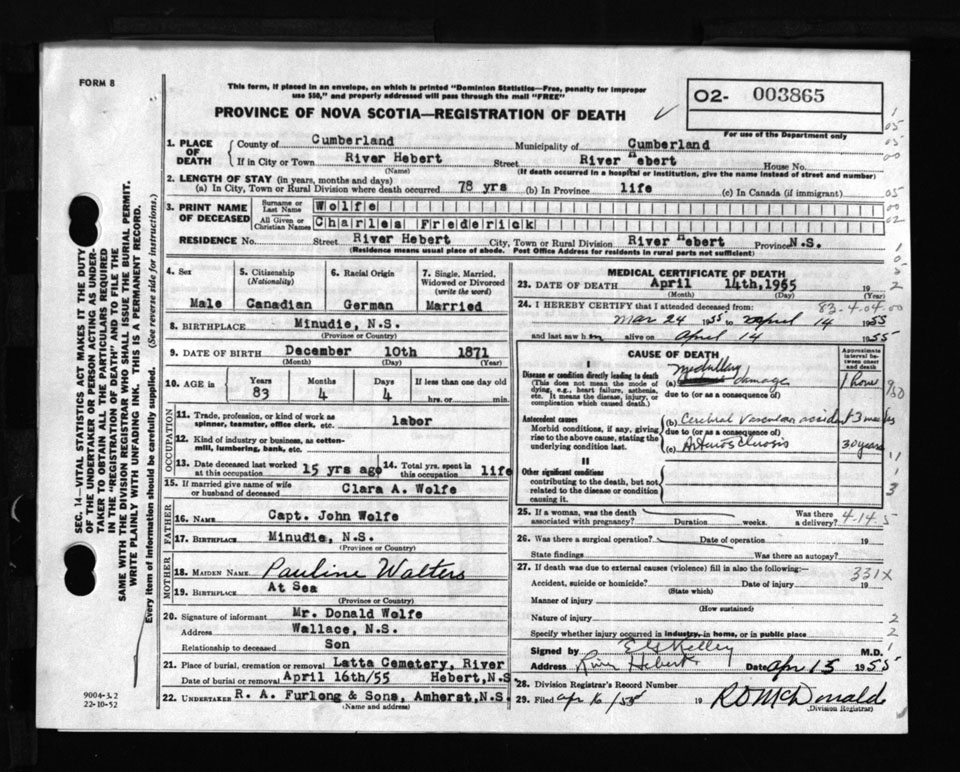 FORM 8
This form, if placed in an envelope, on which is printed "Dominion Statistics—Free, penalty for improper
use $50," and properly addressed will pass through the mail "FREE"
PROVINCE OF NOVA SCOTIA—REGISTRATION OF DEATH
O2- 003865
For use of the Department only
1. PLACE OF DEATH
County of Cumberland Municipality of Cumberland
If in City or Town River Hebert Street River Hebert House No.
(Name) (If death occurred in a hospital or institution, give the name instead of street and number)
2. LENGTH OF STAY (in years, months and days)
(a) In City, Town or Rural Division where death occurred 78 yrs (b) In Province life (c) In Canada (if immigrant)
3. PRINT NAME OF DECEASED
Surname or Last Name Wolfe
All Given or Christian Names Charles Frederick
RESIDENCE No. Street River Hebert City, Town or Rural Division River Hebert Province N.S.
(Residence means usual place of abode. Post Office Address for residents in rural parts not sufficient)
4. Sex
Male
5. Citizenship (Nationality)
Canadian
6. Racial Origin
German
7. Single, Married, Widowed or Divorced (write the word)
Married
8. BIRTHPLACE Minudie, N.S.
(Province or Country)
9. DATE OF BIRTH December 10th 1871
(Month) (Day) (Year)
10. AGE in Years Months Days If less than one day old
83 4 4 hrs. or min.
OCCUPATION
11. Trade, profession, or kind of work as spinner, teamster, office clerk, etc. labor
12. Kind of industry or business, as cotton-mill, lumbering, bank, etc.
13. Date deceased last worked at this occupation 15 yrs ago
14. Total yrs. spent in this occupation life
15. If married give name of wife or husband of deceased Clara A. Wolfe
FATHER
16. NAME Capt. John Wolfe
17. BIRTHPLACE Minudie, N.S.
(Province or Country)
MOTHER
18. MAIDEN NAME Pauline Walters
19. BIRTHPLACE At Sea
(Province or Country)
20. Signature of informant Mr. Donald Wolfe
Address Wallace, N.S.
Relationship to deceased Son
21. Place of burial, cremation or removal Latta Cemetery, River
Date of burial or removal April 16th/55 Hebert, N.S
22. UNDERTAKER R. A. Furlong & Sons, Amherst, N.S.
(Name and address)
MEDICAL CERTIFICATE OF DEATH
23. DATE OF DEATH April 14th, 1965
(Month) (Day) (Year)
24. I HEREBY CERTIFY that I attended deceased from: 83-4-04
Mar 24 1955 to April 14 1955
and last saw him alive on April 14 1955
CAUSE OF DEATH
Approximate interval between onset and death
I
Disease or condition directly leading to death
(This does not mean the mode of dying, e.g., heart failure, asthenia, etc. It means the disease, injury, or complication which caused death.)
(a) Medullary damage 1 hour
due to (or as a consequence of)
Antecedent causes
Morbid conditions, if any, giving rise to the above cause, stating the underlying condition last.
(b) Cerebral Vascular accident 3 weeks
due to (or as a consequence of)
(c) Arteriosclerosis 30 years
II
Other significant conditions
contributing to the death, but not related to the disease or condition causing it.
25. If a woman, was the death associated with pregnancy? Duration weeks. Was there a delivery? 4-14-5
26. Was there a surgical operation? Date of operation 19
State findings Was there an autopsy?
27. If death was due to external causes (violence) fill in also the following:— 331X
Accident, suicide or homicide? Date of injury 19
(State which)
Manner of injury
(How sustained)
Nature of injury
Specify whether injury occurred in industry, in home, or in public place
Signed by E G Kelley M.D.
Address River Hebert Date Apr 15 1955
28. Division Registrar's Record Number
29. Filed Apr 16/55 19 R D McDonald
(Division Registrar)
SEC. 14—VITAL STATISTICS ACT MAKES IT THE DUTY
OF THE UNDERTAKER OR PERSON ACTING AS UNDER-
TAKER TO OBTAIN ALL THE PARTICULARS REQUIRED
IN THE "REGISTRATION OF DEATH" AND TO FILE THE
SAME WITH THE DIVISION REGISTRAR WHO SHALL ISSUE THE BURIAL PERMIT.
WRITE PLAINLY WITH UNFADING INK. THIS IS A PERMANENT RECORD.
Every item of information should be carefully supplied. (See reverse side for instructions.)
9004-3.2
22-10-52